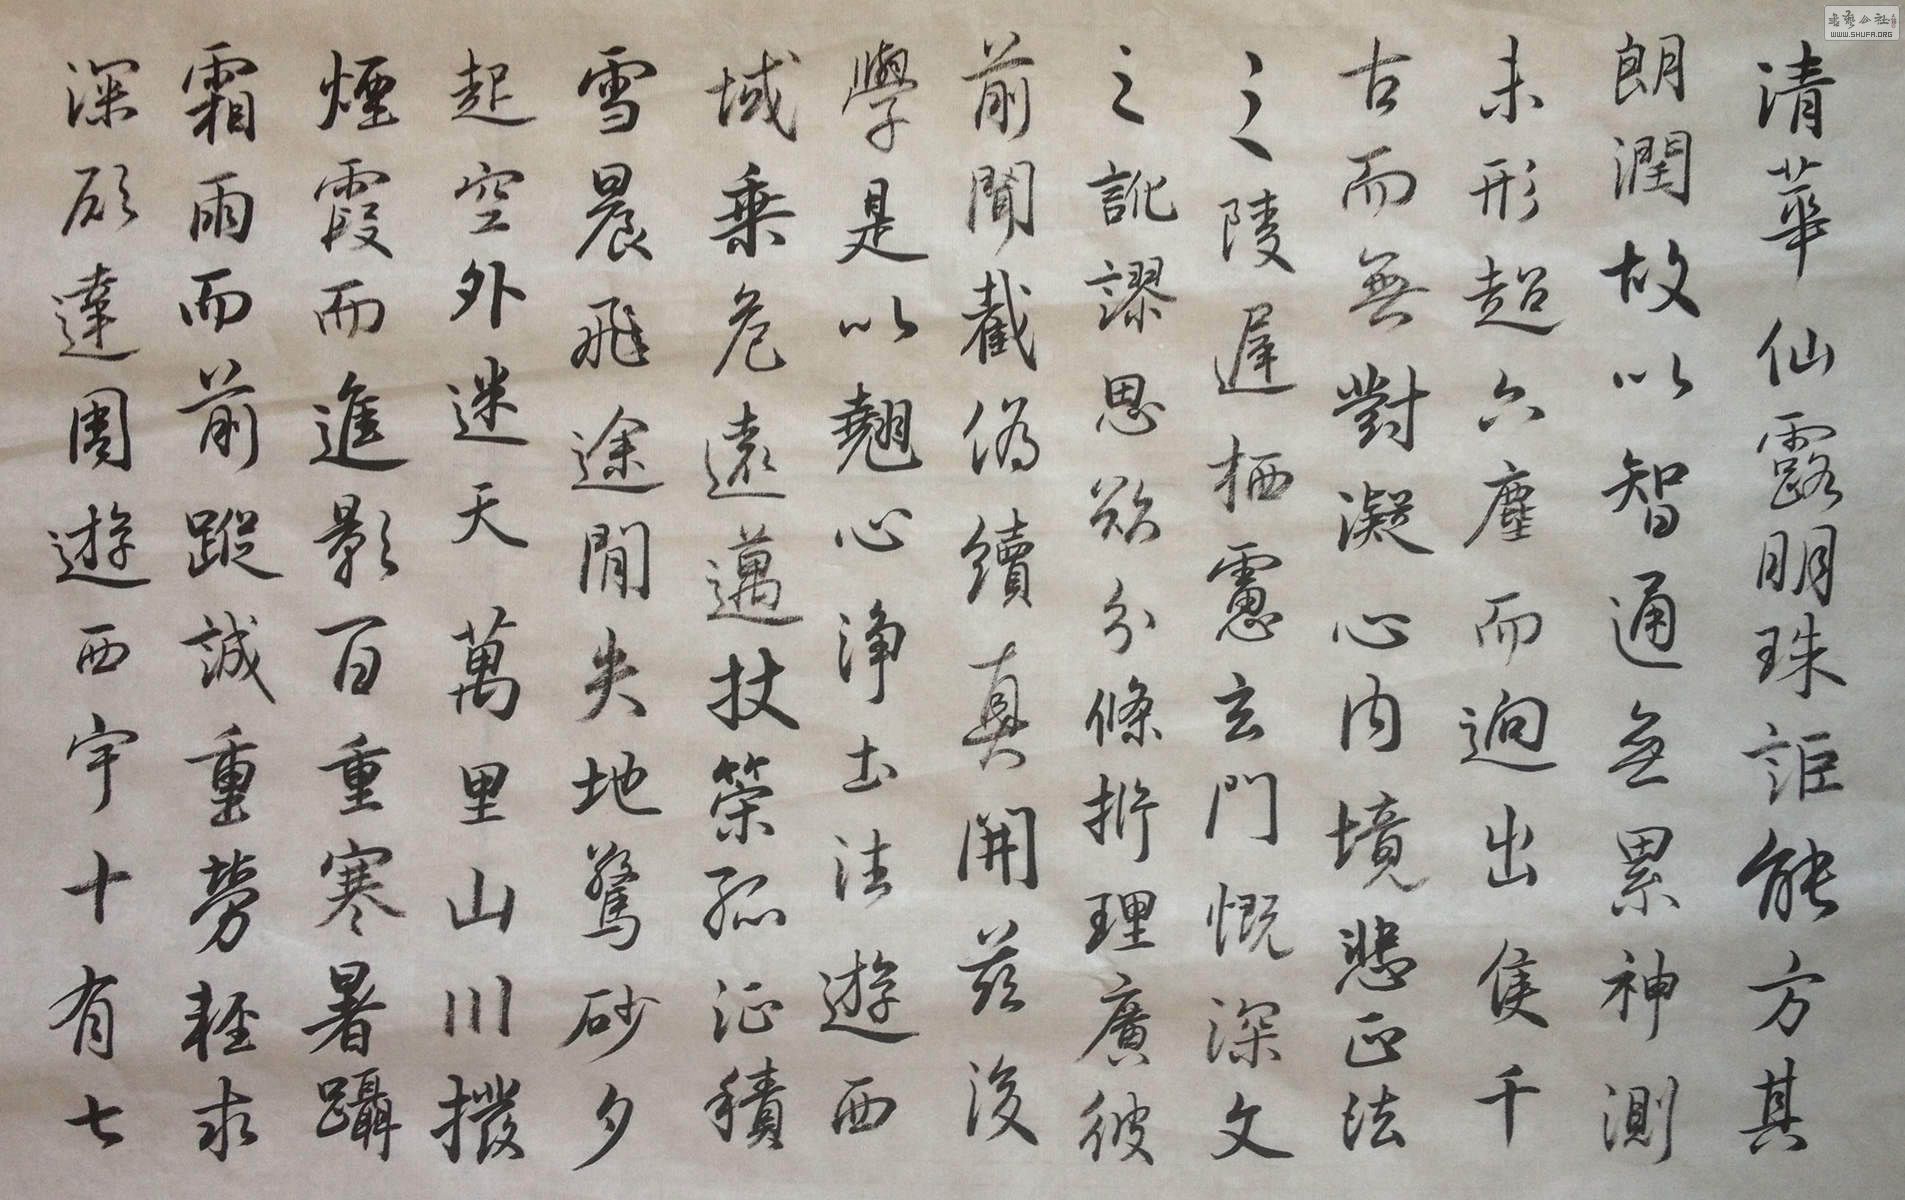 清華仙露明珠詎能方其
朗潤故以智通無累神測
未形超六塵而迥出隻千
古而無對凝心內境悲正法
之陵遲栖慮玄門慨深文
之訛謬思欲分條析理廣彼
前聞截偽續真開茲後
學是以翹心淨土法遊西
域乘危遠邁杖策孤征積
雪晨飛途間失地驚砂夕
起空外迷天萬里山川撥
煙霞而進影百重寒暑躡
霜雨而前蹤誠重勞輕求
深願達周遊西宇十有七
書藝公社
WWW.SHUFA.ORG